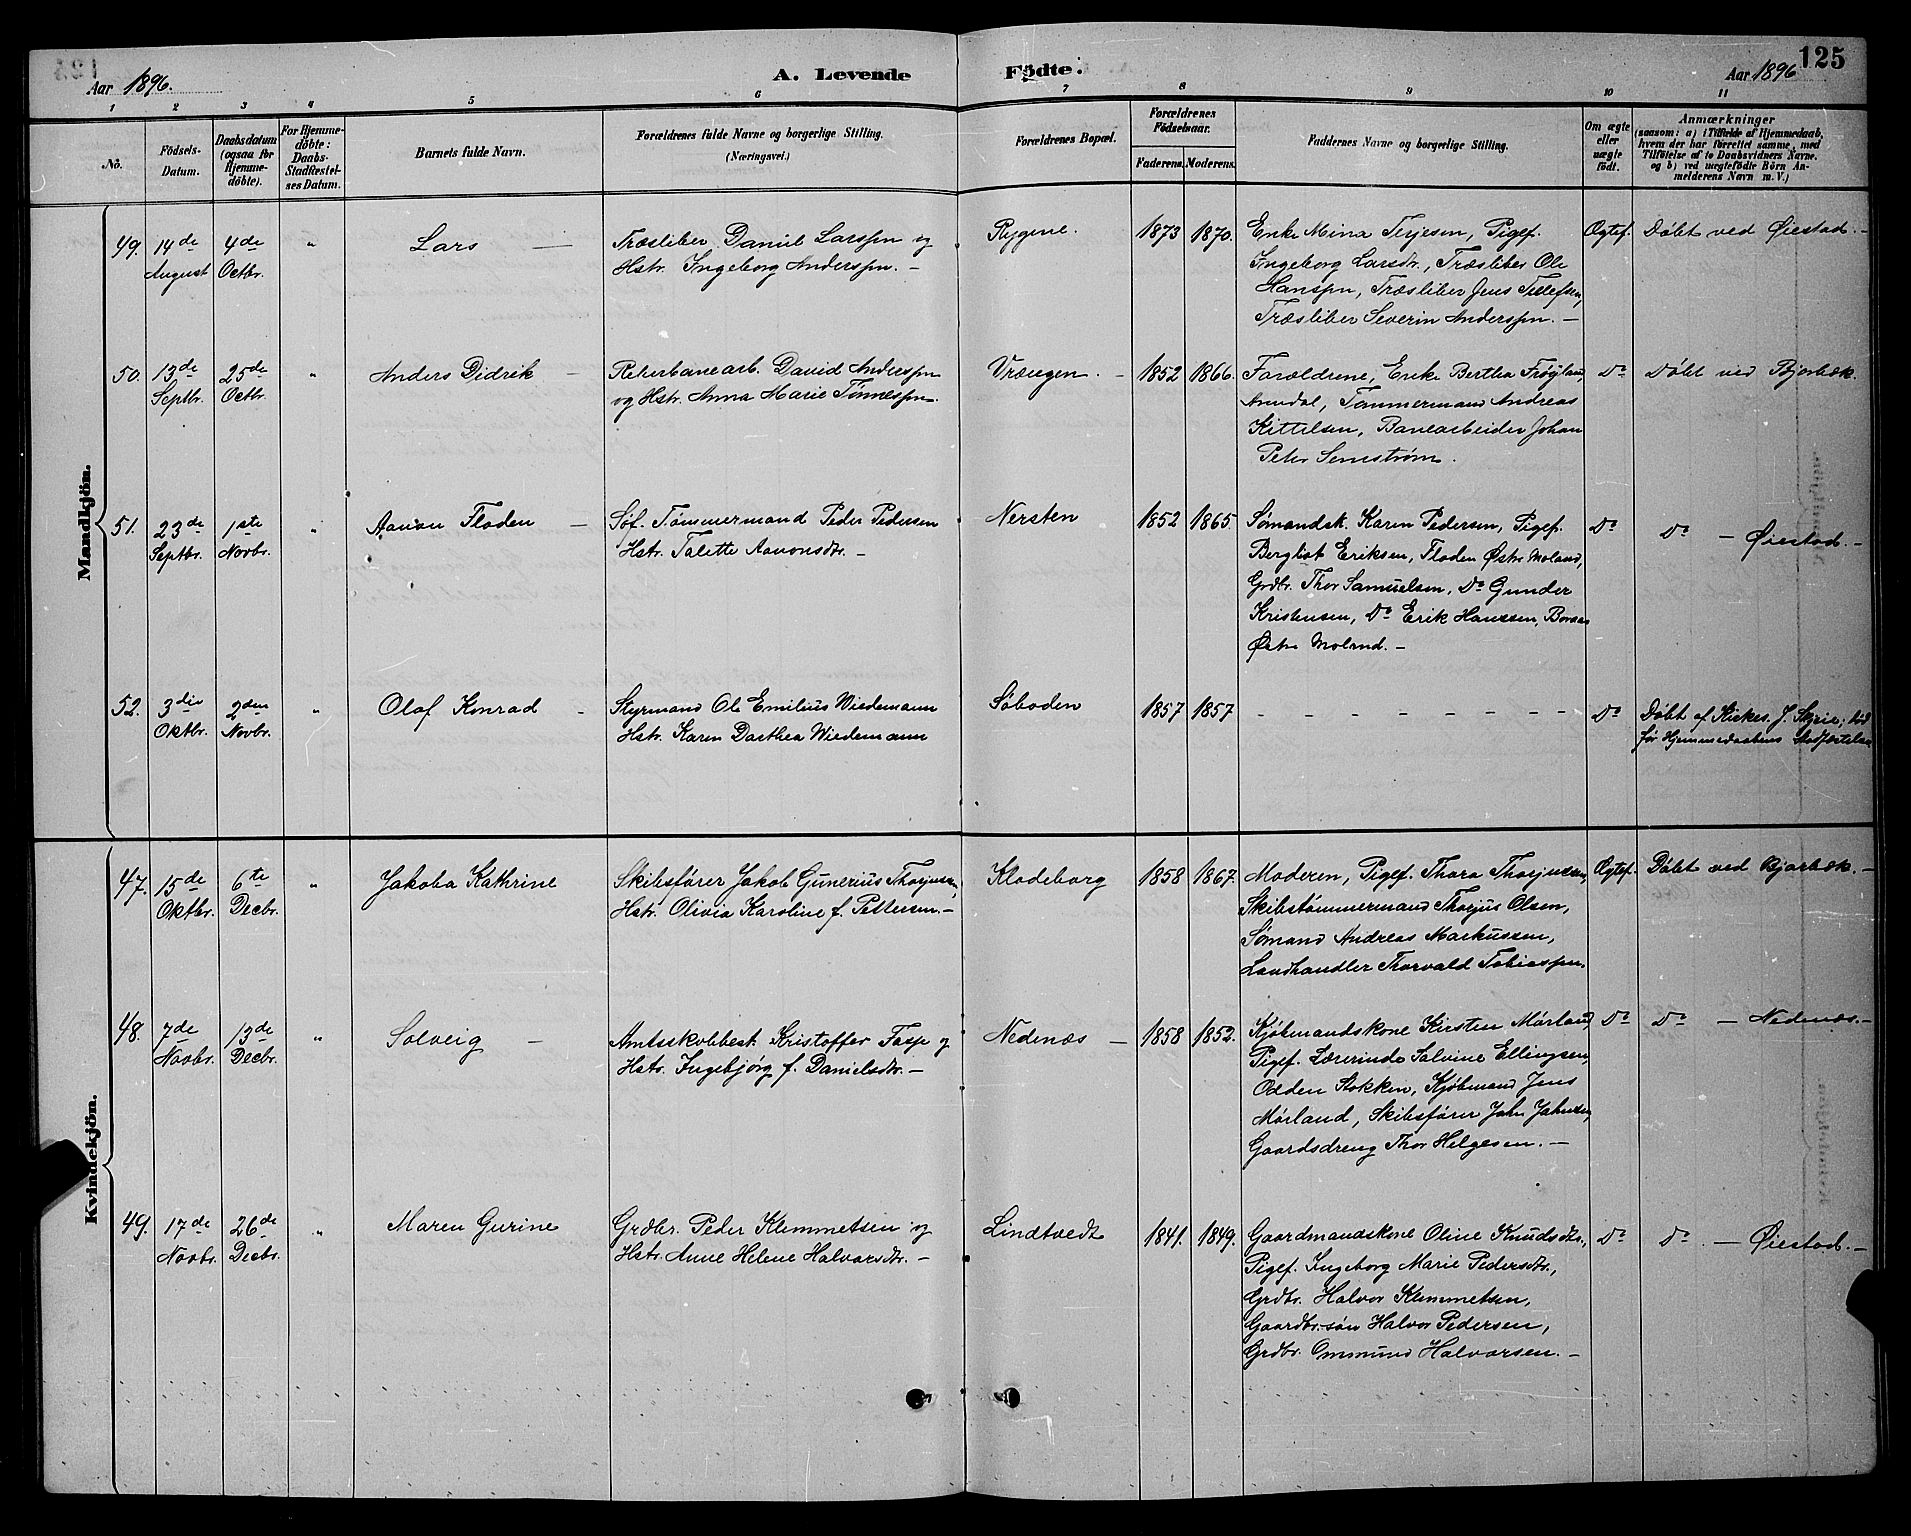 125
Aar 1896.
A. Levende Fødte.
Aar 1896
1 2 3 4 5 6 7 8 9 10 11
No.
Födsels-Datum.
Daabsdatum (ogsaa for Hjemmedöbte).
For Hjemmedöbte: Daabs-Stadfæstelses Datum.
Barnets fulde Navn.
Forældrenes fulde Navne og borgerlige Stilling.
(Næringsvei.)
Forældrenes Bopæl.
Forældrenes Födselsaar.
Faderens. Moderens.
Faddernes Navne og borgerlige Stilling.
Om ægte eller uægte födt.
Anmærkninger
(saasom: a) i Tilfælde af Hjemmedaab, hvem der har forrettet samme, med Tilföielse af to Daabsvidners Navne. og b) ved uægtefödte Börn Anmelderens Navn m. V.)
Mandkjön.
49. 14de August 4de Octbr. " Lars —
Træsliber Daniel Larssen og
Hstr. Ingeborg Anderssen. —
Rygene. 1873 1870.
Enke Mina Terjesen, Pigef.
Ingeborg Larsdtr., Træsliber Ole
Hanssen, Træsliber Jens Tellefsen,
Træsliber Severin Anderssen. —
Ogtef. Döbt ved Øiestad. —
50. 13de Septbr. 25de Octbr. " Anders Didrik —
Reberbanearb. David Anderssen
og Hstr. Anna Marie Tønnessen.
Vrængen. — 1852 1866.
Forældrene, Enke Bertha Frøyland,
Arendal, Tømmermand Andreas
Kittelsen, Banearbeider Johan
Peter Semstrøm.
Do Döbt ved Bjorbæk.
51. 23de Septbr. 1ste Novbr. " Aanon Floden —
Søf. Tømmermand Peder Pedersen
Hstr. Talette Aanonsdtr. —
Nersten 1852 1865.
Sømandsk. Karen Pedersen, Pigef.
Bergliot Eriksen, Floden Østre Moland,
Grdbr. Thor Samuelsen, Do Gunder
Kristensen, Do Erik Hanssen,
Østre Moland. —
Do Do — Øiestad. —
52. 3die Oktbr. 2den Novbr. " Olaf Konrad —
Styrmand Ole Emilius Wiedemann
Hstr. Karen Dorthea Wiedemann
Søboden 1857 1857
— — — — — — — —
Do Döbt af Kirkes. J. Skjrie; död
før Hjemmedaabens Stadfæstelse
Kvindekjön.
47. 15de Oktbr. 6te Decbr. " Jakoba Kathrine
Skibsfører Jakob Gunerius Thorjussen,
Hstr. Olivia Karoline f. Pettersen. —
Klodeborg 1858 1867.
Moderen, Pigef. Thora Thorjussen,
Skibstømmermand Thorjus Olsen,
Sømand Andreas Markussen,
Landhandler Thorvald Tobiassen.
Ogtef. Döbt ved Bjorbæk. —
48. 7de Novbr. 13de Decbr. " Solveig —
Amtsskolbest. Kristoffer Fasp og
Hstr. Ingebjørg f. Danielsdtr. —
Nedenæs — 1858 1852.
Kjøbmandskone Kirsten Mørland,
Pigef. Lærerinde Salvine Ellingsen,
Odden Stokken, Kjøbmand Jens
Mørland, Skibsfører John Johnsen,
Gaardsdreng Thor Helgesen. —
Do Do — Nedenæs. —
49. 17de Novbr. 26de Decbr. " Maren Gurine
Grdbr. Peder Klemmetsen og
Hstr. Anne Helene Halvorsdtr. —
Lindtvedt 1841. 1849.
Gaardmandskone Oline Knudsdtr.,
Pigef. Ingeborg Marie Pedersdtr.,
Grdbr. Halvor Klemmetsen,
Gaardbr.søn Halvor Pedersen,
Grdbr. Ommund Halvorsen. —
Do Do — Øiestad. —